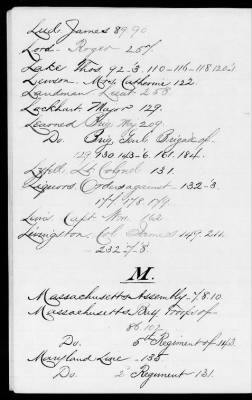 Lud. James 89.90
Lord. Roger 257.
Lake Thos 92-3. 110-116-118.120-1
Lewson. Mrs. Catharine 122.
Landman. Lieut 258.
Lockhart Major 129.
Learned Brig My 209.
Do. Brig. Genl. Brigade of.
129. 130. 143-6. 161. 184.
Lt Colonel 131.
Liquors, Orders against 132-3.
174. 178. 179.
Capt Wm. 162
Livingston, Col. James 149. 211.
232-7-8.
M.
Massachusetts Assembly-7.8.10.
Massachusetts Bay Troops of
86.107.
Do. 5th Regiment of 143.
Maryland Line - 135
Do. 2d Regiment 131.